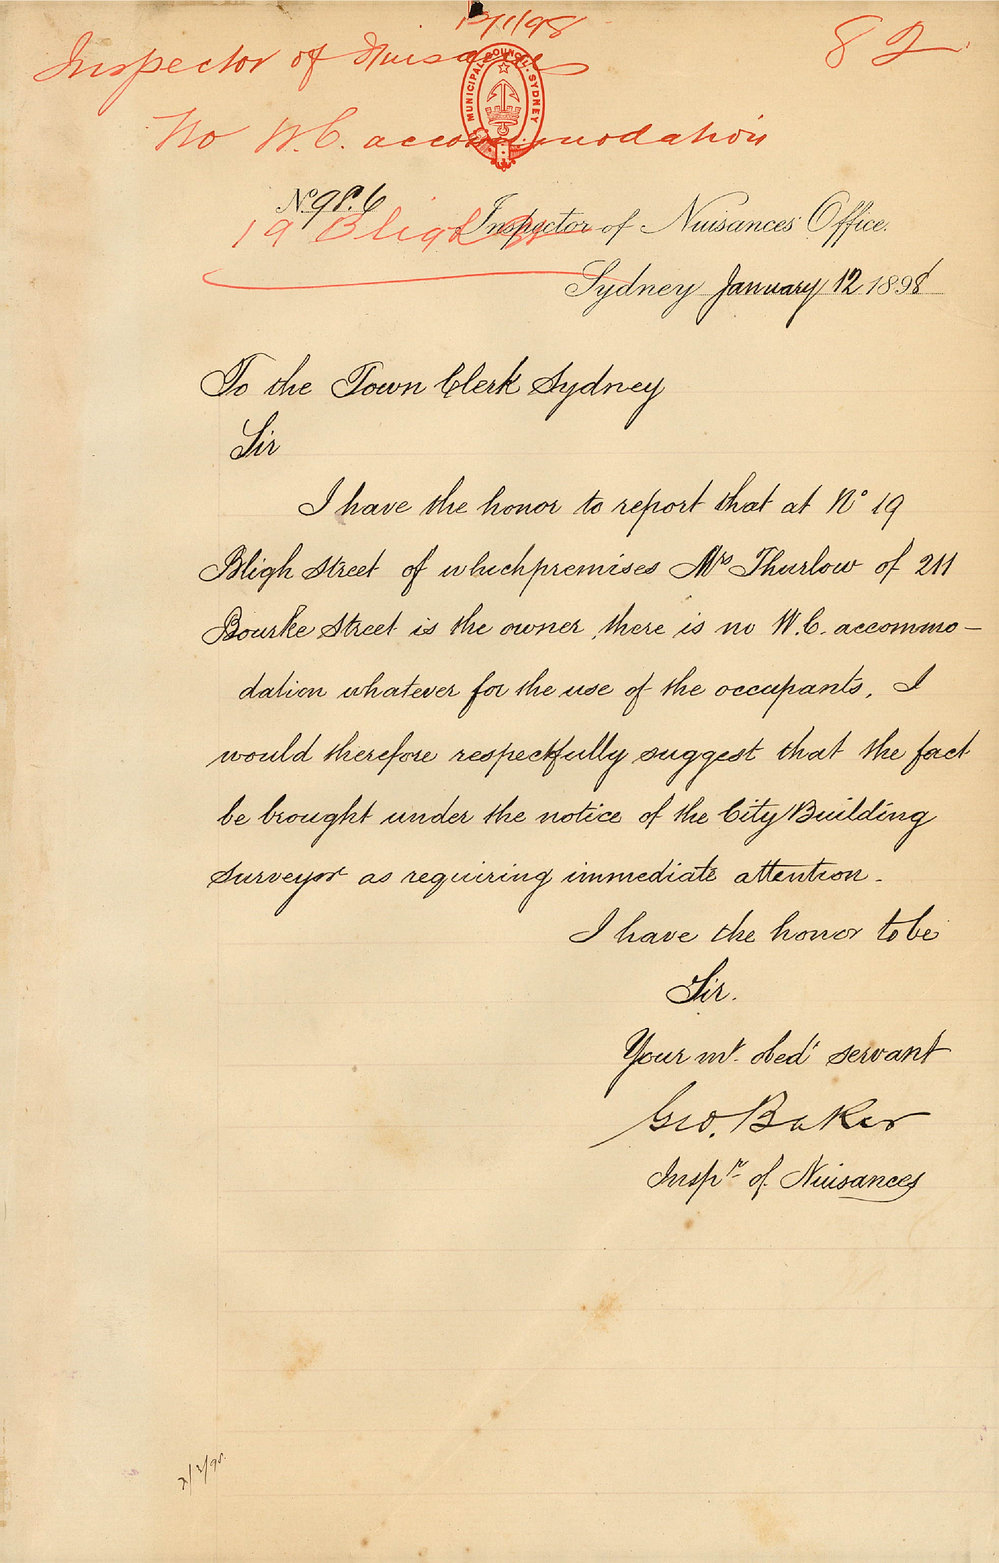 12/1/98
Inspector of Nuisance
82
MUNICIPAL COUNCIL. SYDNEY
No W.C. accommodation
No 98.6
19 Bligh St
Inspector of Nuisances' Office.
Sydney January 12 1898
To the Town Clerk Sydney
Sir
I have the honor to report that at No 19
Bligh Street of which premises Mrs Thurlow of 211
Bourke Street is the owner, there is no W.C. accommo-
dation whatever for the use of the occupants, I
would therefore respectfully suggest that the fact
be brought under the notice of the City Building
Surveyor as requiring immediate attention.
I have the honor to be
Sir.
Your mt. obedt servant
Geo. Baker
Inspr of Nuisances